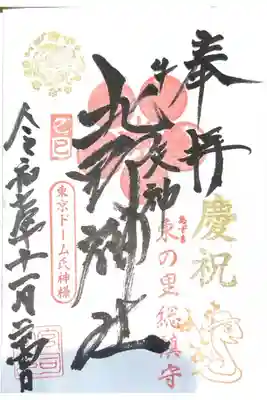 奉拝
慶祝
東の里総鎮守
牛天神
北野神社
乙巳
東京ドーム氏神様
令和七年十一月